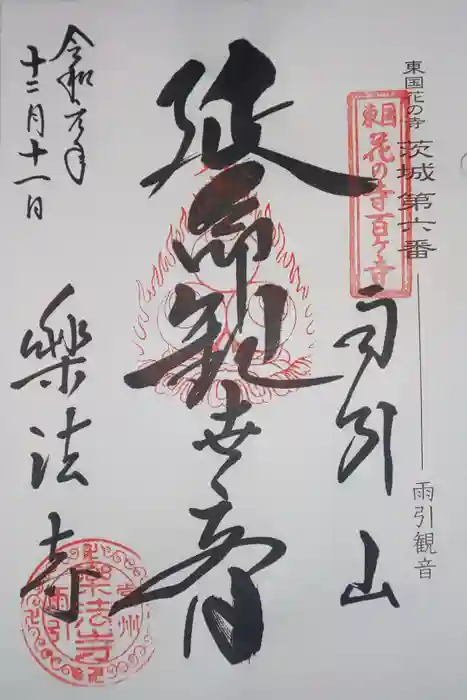 東国花の寺 茨城第六番
雨引観音
東国花の寺百ヶ寺
雨引山
延命観世音
令和元年
十二月十一日
樂法寺
樂法寺
雨引
常州